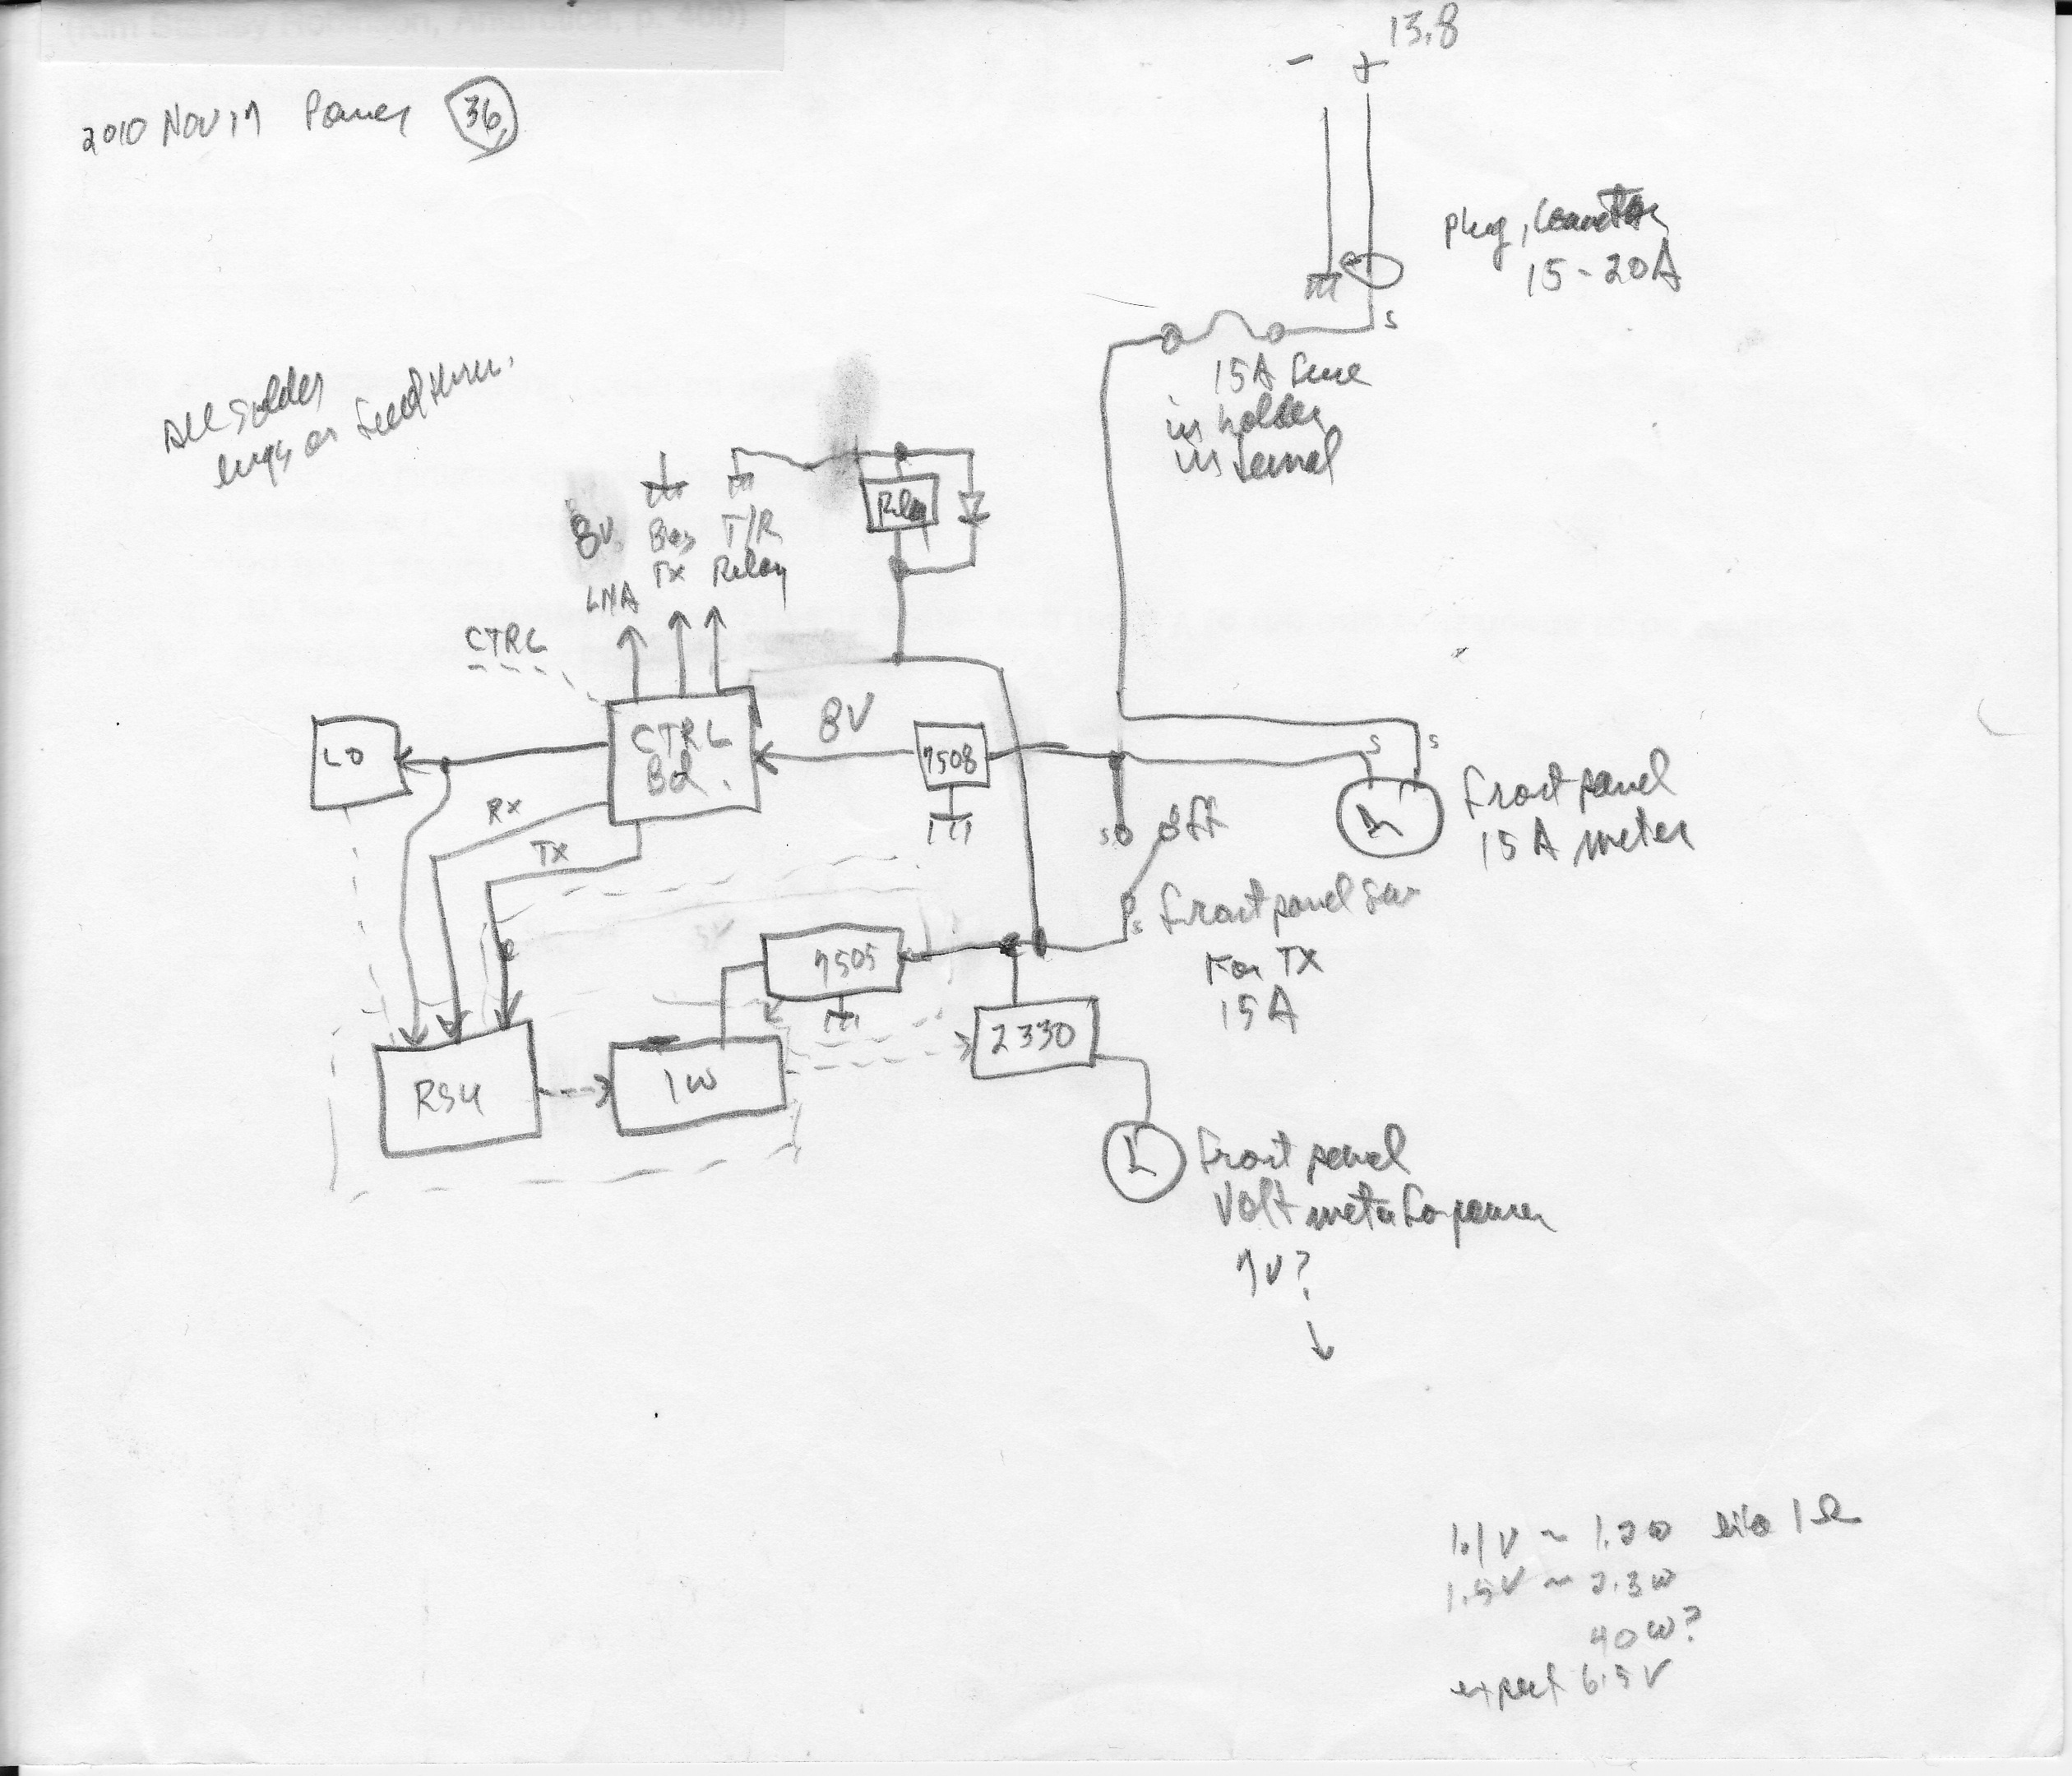 (Kim Stanley Robinson, Antarctica, p. 460)
2010 NOV 17 Power 36
13.8
- +
Plug, Connector
15-20A
s
15A fuse
in holder
internal
All solder
lugs or feedthru.
Relay
8V. Bias T/R
LNA TX Relay
CTRL
CTRL
Bd.
8V
7508
LO
RX
TX
s s
A
Front panel
15A meter
s off
s
Front panel sw
For TX
15A
5V
7505
2330
RSU
1W
Front panel
Volt meter for power
1V?
1.1V ~ 1.20 like 1Ω
1.5V ~ 2.3W
40W?
expect 6.5V